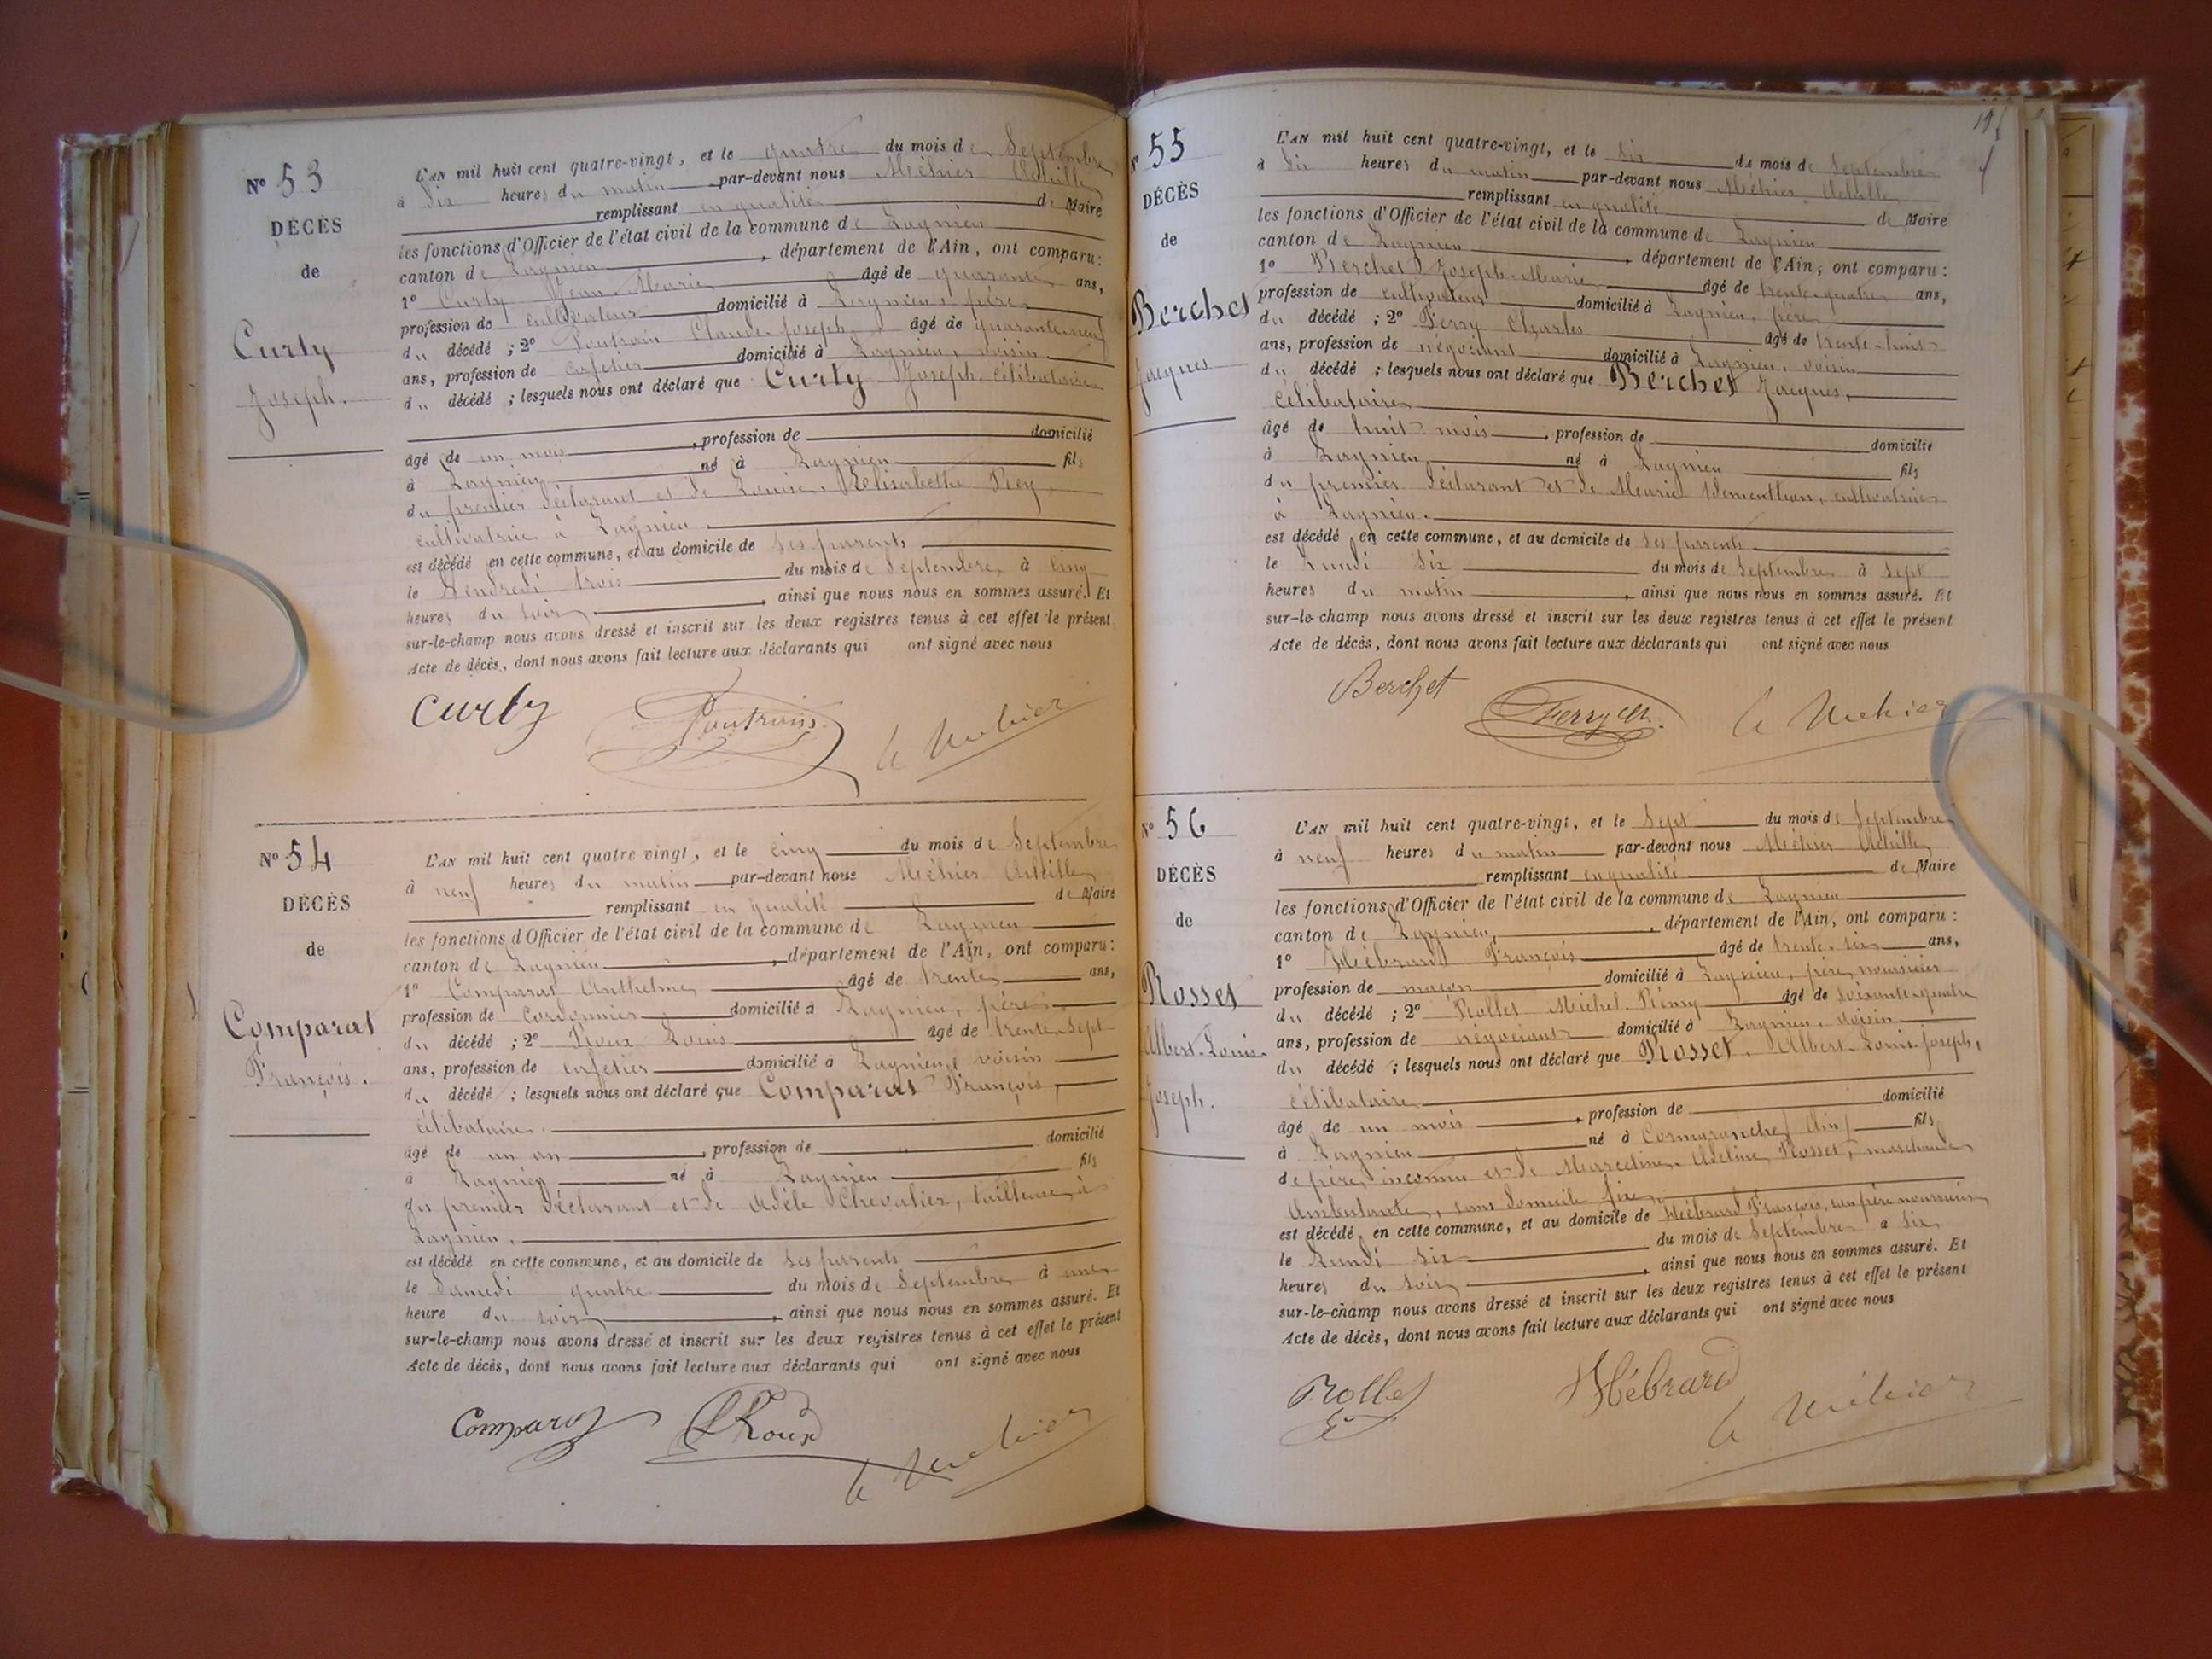 Nº 53
DÉCÈS
de
Curty
Joseph.
L'AN mil huit cent quatre-vingt, et le quatre du mois de Septembre
à dix heures du matin par-devant nous Méhier Achille
remplissant en qualité de Maire
les fonctions d'Officier de l'état civil de la commune de Lagnieu
canton de Lagnieu, département de l'Ain, ont comparu:
1º Curty Jean-Marie âgé de quarante ans,
profession de cultivateur domicilié à Lagnieu, père
du décédé ; 2º Poutrain Claude-Joseph âgé de quarante-neuf
ans, profession de cafetier domicilié à Lagnieu, voisin
du décédé ; lesquels nous ont déclaré que Curty Joseph, célibataire
âgé de un mois, profession de domicilié
à Lagnieu, né à Lagnieu fils
du premier déclarant et de Louise Elisabeth Rey,
cultivatrice à Lagnieu.
est décédé en cette commune, et au domicile de ses parents
le Vendredi trois du mois de Septembre à cinq
heures du soir, ainsi que nous nous en sommes assuré. Et
sur-le-champ nous avons dressé et inscrit sur les deux registres tenus à cet effet le présent
Acte de décès, dont nous avons fait lecture aux déclarants qui ont signé avec nous
Curty
A. Méhier
Nº 54
DÉCÈS
de
Comparat
François.
L'AN mil huit cent quatre vingt, et le cinq du mois de Septembre
à neuf heures du matin par-devant nous Méhier Achille
remplissant en qualité de Maire
les fonctions d'Officier de l'état civil de la commune de Lagnieu
canton de Lagnieu, département de l'Ain, ont comparu:
1º Comparat Anthelme âgé de trente ans,
profession de cordonnier domicilié à Lagnieu, père
du décédé ; 2º Roux Louis âgé de trente-sept
ans, profession de cafetier domicilié à Lagnieu, voisin
du décédé ; lesquels nous ont déclaré que Comparat François,
célibataire.
âgé de un an, profession de " domicilié
à Lagnieu né à Lagnieu fils
du premier déclarant et de Adèle Chevalier, tailleuse à
Lagnieu.
est décédé en cette commune, et au domicile de ses parents
le Samedi quatre du mois de Septembre à une
heure du soir, ainsi que nous nous en sommes assuré. Et
sur-le-champ nous avons dressé et inscrit sur les deux registres tenus à cet effet le présent
Acte de décès, dont nous avons fait lecture aux déclarants qui ont signé avec nous
Comparat
L Roux
A. Méhier
Nº 55
DÉCÈS
de
Berchet
Jacques
L'AN mil huit cent quatre-vingt, et le six du mois de Septembre
à dix heures du matin par-devant nous Méhier Achille
remplissant en qualité de Maire
les fonctions d'Officier de l'état civil de la commune de Lagnieu
canton de Lagnieu, département de l'Ain, ont comparu :
1º Berchet Joseph-Marie âgé de trente-quatre ans,
profession de cultivateur domicilié à Lagnieu, père
du décédé ; 2º Ferry Charles âgé de trente-huit
ans, profession de négociant domicilié à Lagnieu, voisin
du décédé ; lesquels nous ont déclaré que Berchet Jacques,
célibataire
âgé de huit mois, profession de domicilié
à Lagnieu né à Lagnieu fils
du premier déclarant et de Marie Dementhon, cultivatrice
à Lagnieu.
est décédé en cette commune, et au domicile de ses parents
le Lundi six du mois de Septembre à sept
heures du matin, ainsi que nous nous en sommes assuré. Et
sur-le-champ nous avons dressé et inscrit sur les deux registres tenus à cet effet le présent
Acte de décès, dont nous avons fait lecture aux déclarants qui ont signé avec nous
Berchet
Ferry Ch.
A. Méhier
Nº 56
DÉCÈS
de
Rosset
Albert-Louis-
Joseph.
L'AN mil huit cent quatre-vingt, et le sept du mois de Septembre
à neuf heures du matin par-devant nous Méhier Achille
remplissant en qualité de Maire
les fonctions d'Officier de l'état civil de la commune de Lagnieu
canton de Lagnieu, département de l'Ain, ont comparu :
1º Hébrard François âgé de trente-six ans,
profession de maçon domicilié à Lagnieu, père nourricier
du décédé ; 2º Rollet Michel-Rémy âgé de soixante-quatre
ans, profession de négociant domicilié à Lagnieu, voisin
du décédé ; lesquels nous ont déclaré que Rosset Albert-Louis-Joseph,
célibataire
âgé de un mois, profession de domicilié
à Lagnieu né à Cormaranche (Ain) fils
de père inconnu et de Marceline-Adeline Rosset, marchande
Ambulante, sans domicile fixe,
est décédé en cette commune, et au domicile de Hébrard François, son père nourricier
le Lundi six du mois de Septembre à six
heures du soir, ainsi que nous nous en sommes assuré. Et
sur-le-champ nous avons dressé et inscrit sur les deux registres tenus à cet effet le présent
Acte de décès, dont nous avons fait lecture aux déclarants qui ont signé avec nous
Rollet
Hébrard
A. Méhier